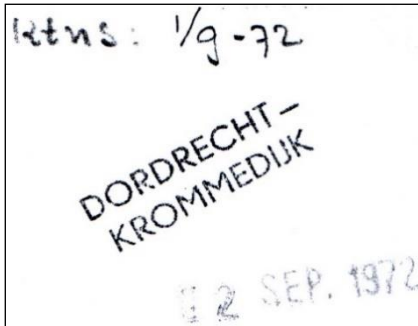 Rtns: 1/9-72
DORDRECHT–
KROMMEDIJK
2 SEP. 1972